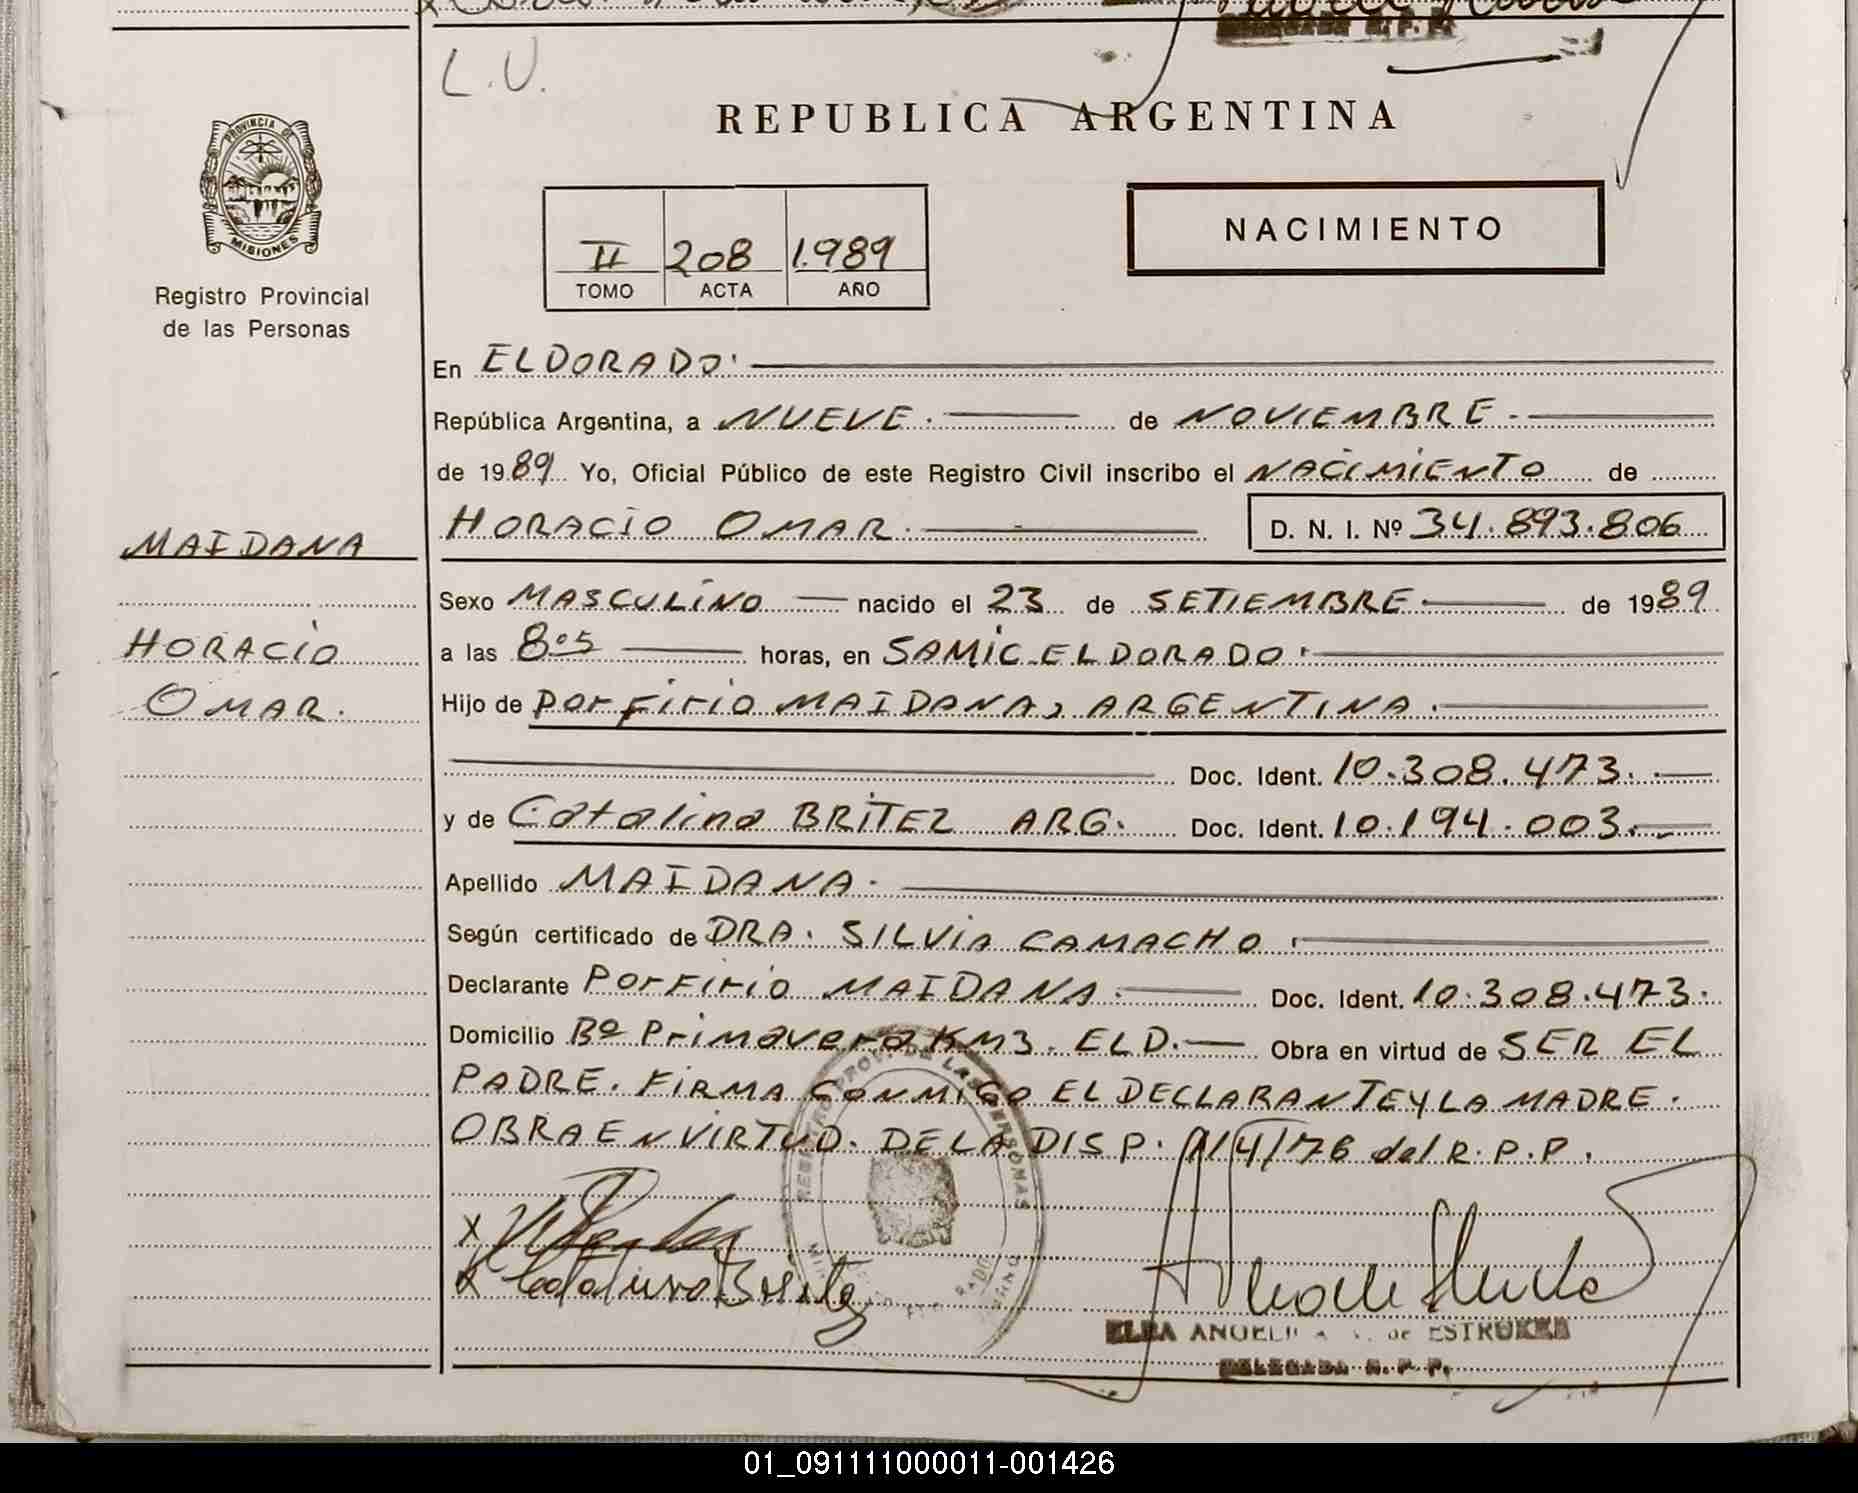 L.U.
REPUBLICA ARGENTINA
PROVINCIA DE
MISIONES
Registro Provincial
de las Personas
II 208 1.989
TOMO ACTA AÑO
NACIMIENTO
En ELDORADO.
República Argentina, a NUEVE. de NOVIEMBRE.
de 1989 Yo, Oficial Público de este Registro Civil inscribo el NACIMIENTO de
HORACIO OMAR. D. N. I. Nº 34.893.806
MAIDANA
HORACIO
OMAR.
Sexo MASCULINO nacido el 23 de SETIEMBRE de 1989
a las 8 05 horas, en SAMIC ELDORADO.
Hijo de PorFirio MAIDANA, ARGENTINA.
Doc. Ident. 10.308.473.
y de Catalina BRITEZ ARG. Doc. Ident. 10.194.003.
Apellido MAIDANA.
Según certificado de DRA. SILVIA CAMACHO.
Declarante PorFirio MAIDANA. Doc. Ident. 10.308.473.
Domicilio Bº Primavera KM3. ELD. Obra en virtud de SER EL
PADRE. FIRMA CONMIGO EL DECLARANTE Y LA MADRE.
OBRA EN VIRTUD. DE LA DISP. 114/76 del R.P.P.
X
X Catalina Britez
DE LAS PERSONAS
ELBA ANGELICA de ESTRUKEN
DELEGADA R. P. P.
01_091111000011-001426